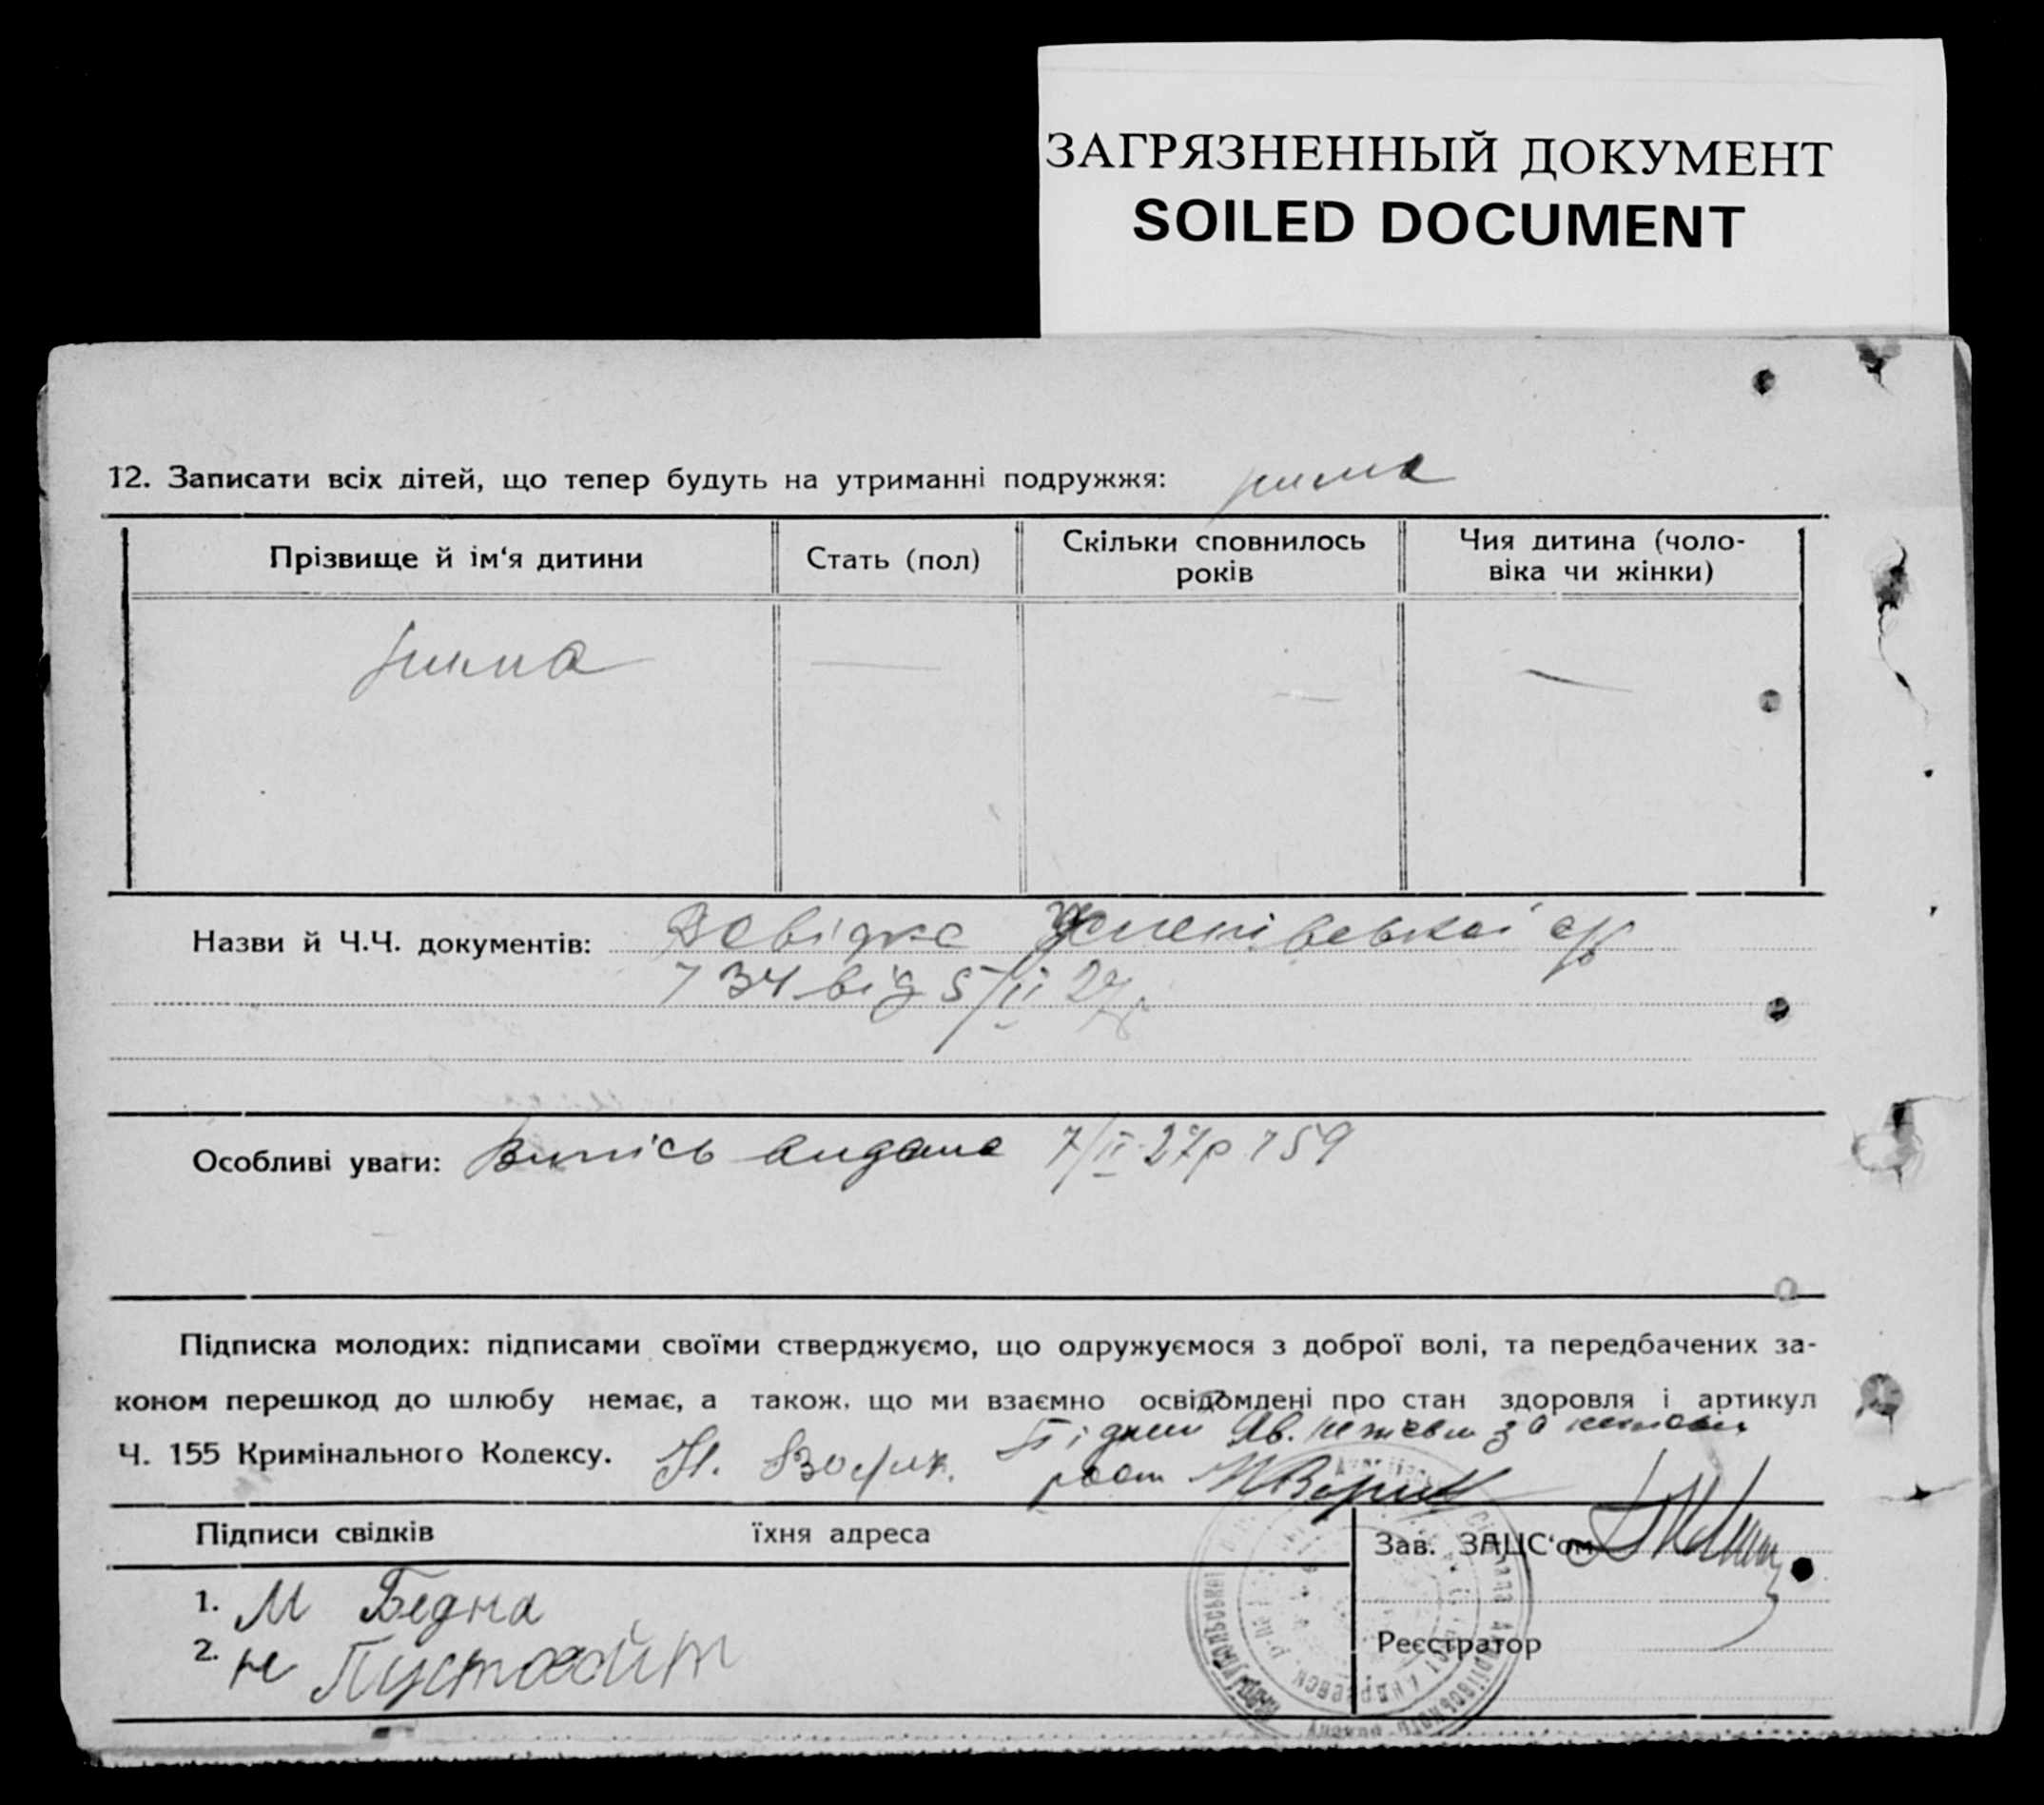 ЗАГРЯЗНЕННЫЙ ДОКУМЕНТ
SOILED DOCUMENT
12. Записати всіх дітей, що тепер будуть на утриманні подружжя: нима
Прізвище й ім‘я дитини
Стать (пол)
Скільки сповнилось
років
Чия дитина (чоло-
віка чи жінки)
нима — — —
Назви й Ч.Ч. документів: Довідка
734 від 5/II 27р.
Особливі уваги: Випісь видана 7/II 27р 759
Підписка молодих: підписами своїми стверджуємо, що одружуємося з доброї волі, та передбачених за-
коном перешкод до шлюбу немає, а також, що ми взаємно освідомлені про стан здоровля і артикул
Ч. 155 Кримінального Кодексу. Н.
Підписи свідків
їхня адреса
Зав. ЗАЦС‘ом
1. М Бедна
2. не Пустовойт
Реєстратор